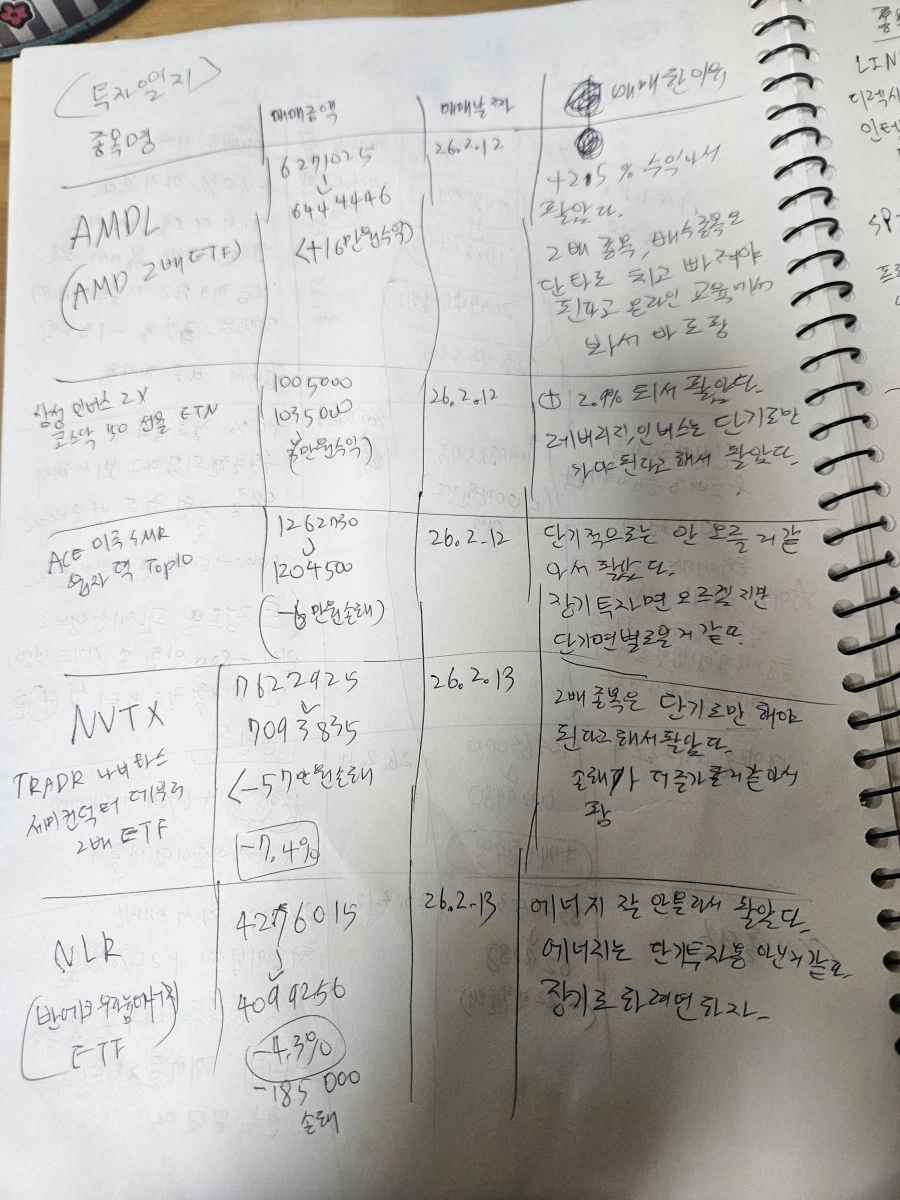 (투자일지)
종목명
매매금액
매매날짜
매매한이유
AMDL
(AMD 2배 ETF)
6271025
↓
6444446
(+16만원수익)
26.2.12
+2.5% 수익나서
팔았다.
2배 종목, 배수종목은
단타로 치고 빠져야
된다고 온라인 교육에서
봐서 바로팜
삼성 인버스 2X
코스닥 150 선물 ETN
1005000
1035000
26.2.12
⊕ 2.9% 되서 팔았다.
레버리지,인버스는 단기로만
가야된다고해서 팔았다.
ACE 미국SMR
원자력 Top10
1262730
↓
1204500
(-6만원손해)
26.2.12
단기적으로는 안 오를 거 같
아서 팔았다.
장기투자면 오르겠지만
단기면별로일거 같다
NVTX
TRADR 나비타스
세미컨덕터 데일리
2배 ETF
7622925
↓
7093835
<-57만원손해
-7.4%
26.2.13
2배종목은 단기로만 해야
된다고해서팔았다.
손해가 더증가할거같아서
팜
NLR
ETF
4276015
↓
4099256
-4.3%
-185000
손해
26.2.13
에너지 잘 안올라서 팔았다.
에너지는 단기투자용 아닌거같다.
장기로 하려면하자.
종목
LIN
디렉시
인텔
SP
프로